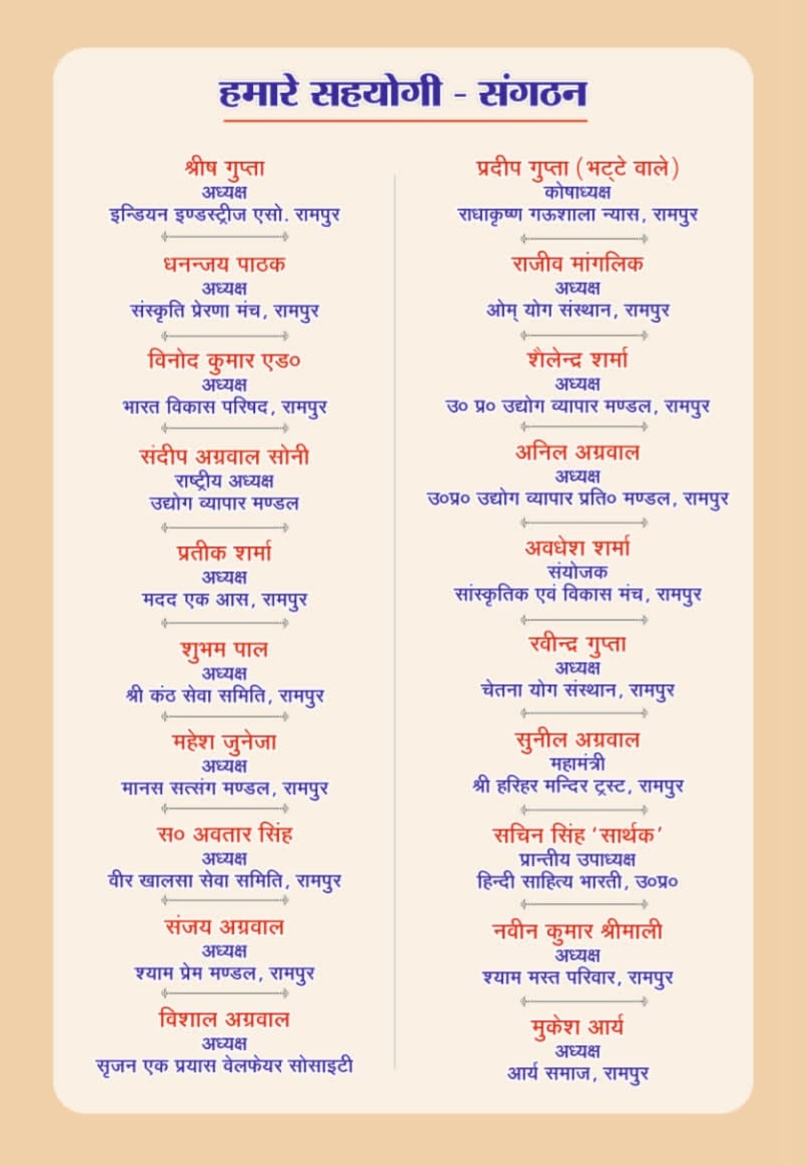 हमारे सहयोगी - संगठन
श्रीष गुप्ता
अध्यक्ष
इन्डियन इण्डस्ट्रीज एसो. रामपुर
धनन्जय पाठक
अध्यक्ष
संस्कृति प्रेरणा मंच, रामपुर
विनोद कुमार एड०
अध्यक्ष
भारत विकास परिषद, रामपुर
संदीप अग्रवाल सोनी
राष्ट्रीय अध्यक्ष
उद्योग व्यापार मण्डल
प्रतीक शर्मा
अध्यक्ष
मदद एक आस, रामपुर
शुभम पाल
अध्यक्ष
श्री कंठ सेवा समिति, रामपुर
महेश जुनेजा
अध्यक्ष
मानस सत्संग मण्डल, रामपुर
स० अवतार सिंह
अध्यक्ष
वीर खालसा सेवा समिति, रामपुर
संजय अग्रवाल
अध्यक्ष
श्याम प्रेम मण्डल, रामपुर
विशाल अग्रवाल
अध्यक्ष
सृजन एक प्रयास वेलफेयर सोसाइटी
प्रदीप गुप्ता (भट्टे वाले)
कोषाध्यक्ष
राधाकृष्ण गऊशाला न्यास, रामपुर
राजीव मांगलिक
अध्यक्ष
ओम् योग संस्थान, रामपुर
शैलेन्द्र शर्मा
अध्यक्ष
उ० प्र० उद्योग व्यापार मण्डल, रामपुर
अनिल अग्रवाल
अध्यक्ष
उ०प्र० उद्योग व्यापार प्रति० मण्डल, रामपुर
अवधेश शर्मा
संयोजक
सांस्कृतिक एवं विकास मंच, रामपुर
रवीन्द्र गुप्ता
अध्यक्ष
चेतना योग संस्थान, रामपुर
सुनील अग्रवाल
महामंत्री
श्री हरिहर मन्दिर ट्रस्ट, रामपुर
सचिन सिंह ‘सार्थक’
प्रान्तीय उपाध्यक्ष
हिन्दी साहित्य भारती, उ०प्र०
नवीन कुमार श्रीमाली
अध्यक्ष
श्याम मस्त परिवार, रामपुर
मुकेश आर्य
अध्यक्ष
आर्य समाज, रामपुर